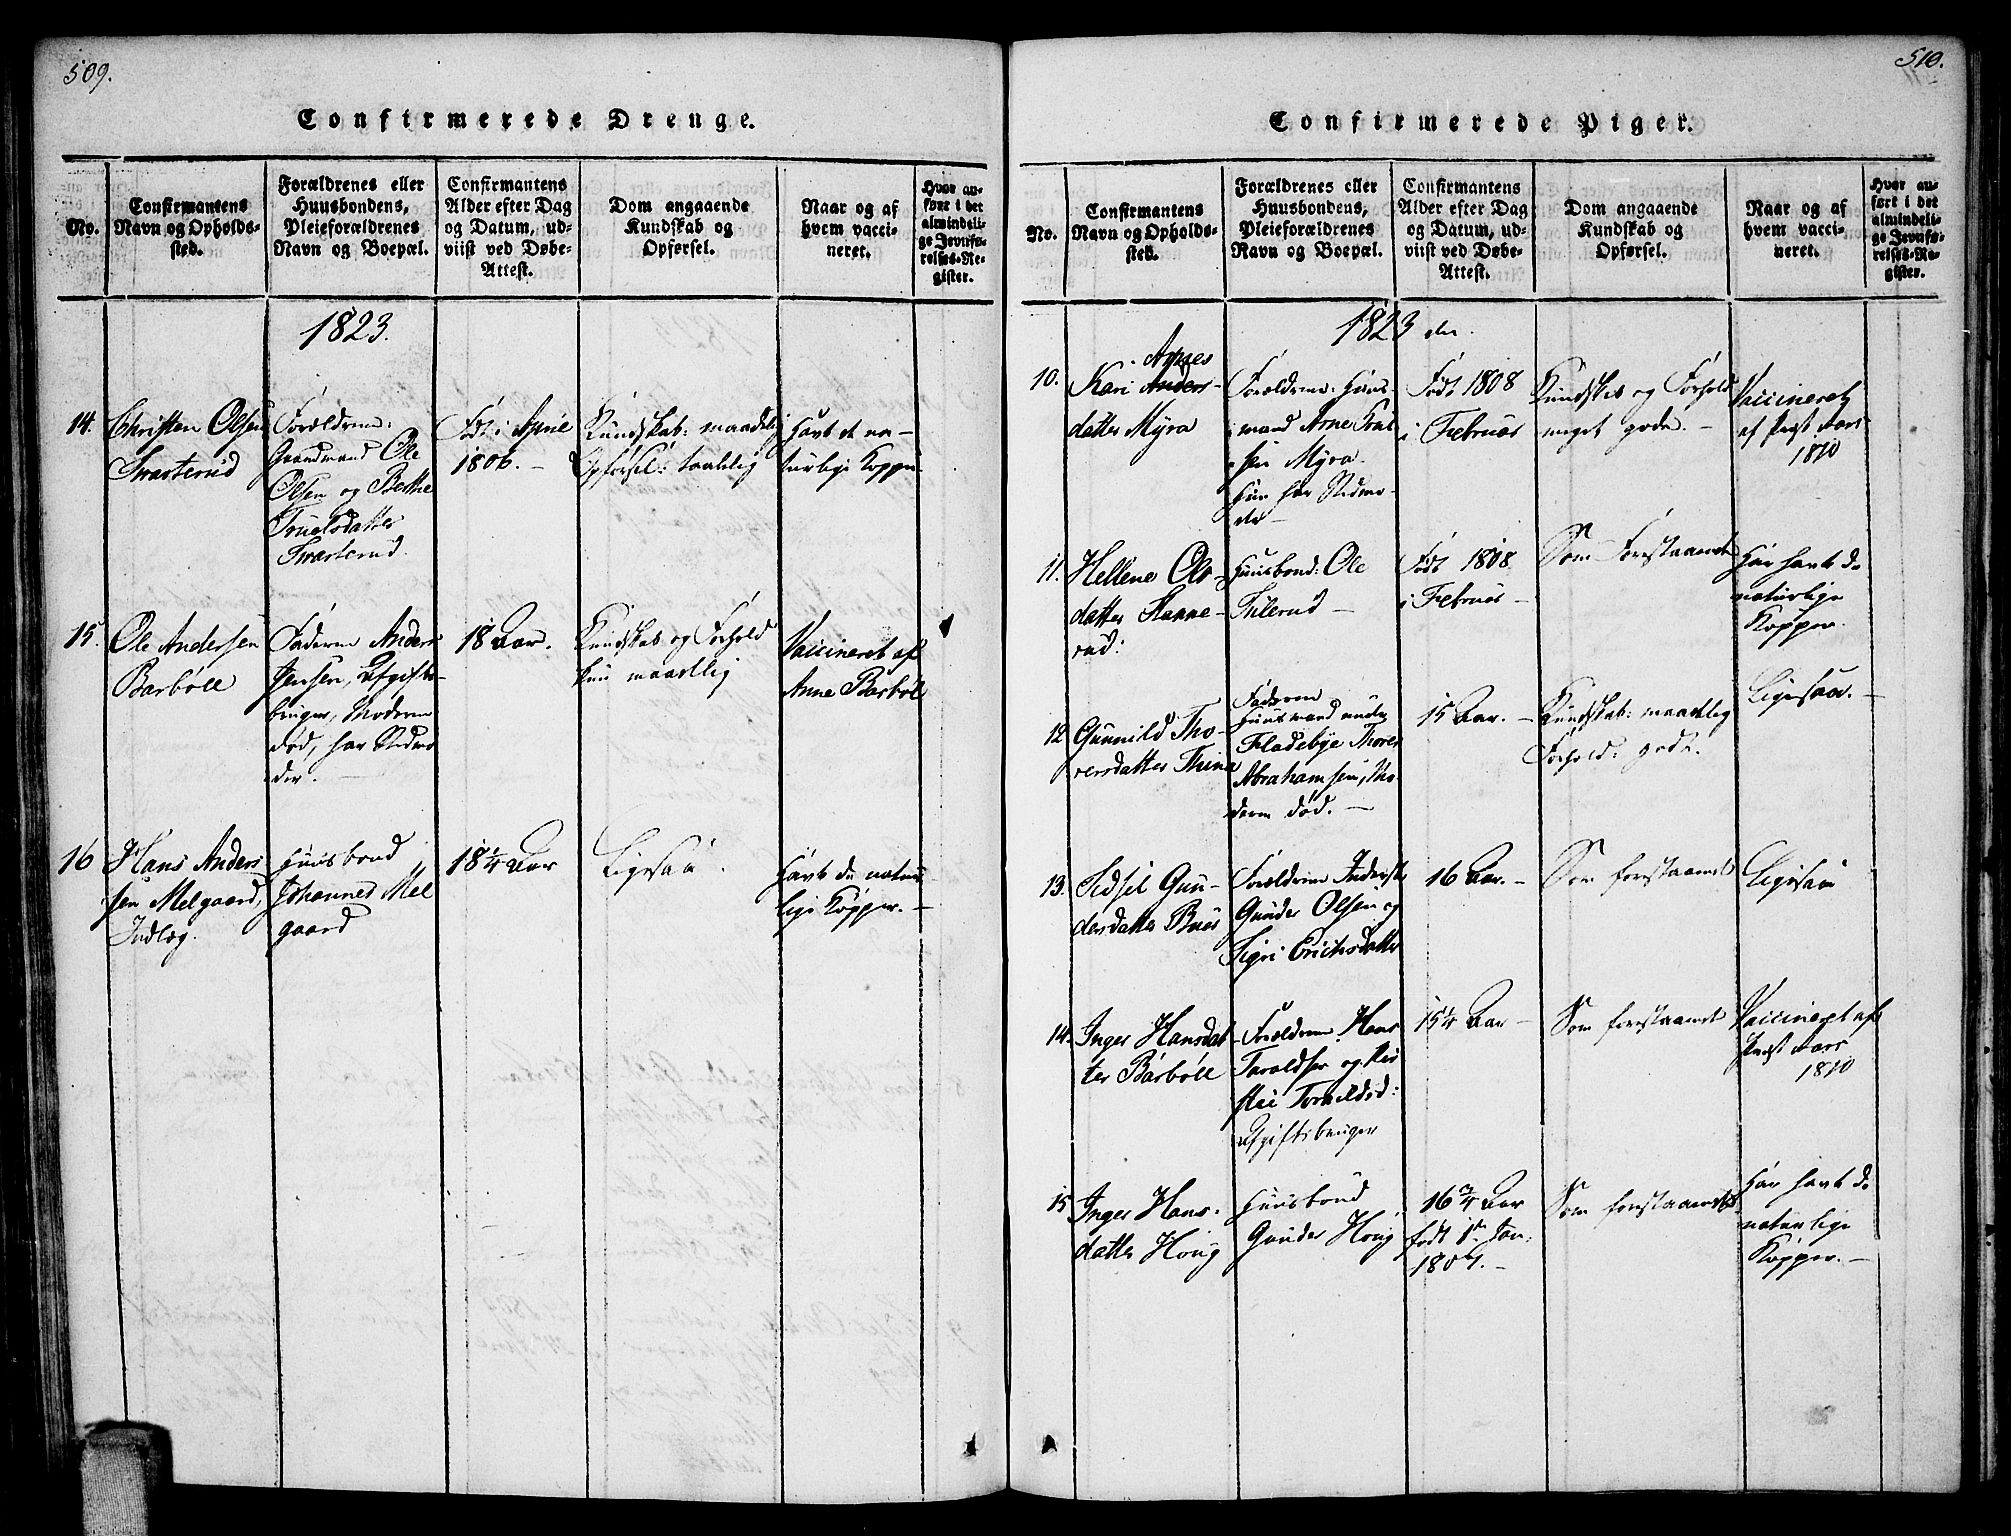 509.
Confirmerede Drenge.
No.
Confirmantens
Navn og Opholds-
sted.
Forældrenes eller
Huusbondens,
Pleieforældrenes
Navn og Boepæl.
Confirmantens
Alder efter Dag
og Datum, ud-
viist ved Døbe-
Attest.
Dom angaaende
Kundskab og
Opførsel.
Naar og af
hvem vacci-
neret.
Hvor an-
ført i det
almindeli-
ge Jevnfø-
relses-Re-
gister.
1823.
14.
Christen Olsen
Svarterud
Forældrene:
Gaardmand Ole
Olsen og Berthe
Truelsdatter
Svarterud.
Født i April
1806.
Kundskab: maadelig
Opførsel: taalelig
Havt de na-
turlige Kopper
15.
Ole Andersen
Barbøll
Faderen Anders
Jensen, Afgifts-
bruger, Moderen
død, har Stedmo
der.
18 Aar.
Kundskab og Forhold
kun maadelig
Vaccineret af
Anne Barbøl
16
Hans Anders
sen Melgaard,
Indlæg.
Huusbond
Johannes Mel
gaard
18 1/4 Aar
Ligesaa.
Havt de natur
lige Kopper.
510.
Confirmerede Piger.
No.
Confirmantens
Navn og Opholds-
sted.
Forældrenes eller
Huusbondens,
Pleieforældrenes
Navn og Boepæl.
Confirmantens
Alder efter Dag
og Datum, ud-
viist ved Døbe-
Attest.
Dom angaaende
Kundskab og
Opførsel.
Naar og af
hvem vacci-
neret.
Hvor an-
ført i det
almindeli-
ge Jevnfø-
relses-Re-
gister.
1823
10.
Arnes
Kari Anders-
datter Myra
Forældrene: Huus-
mand Arne
sen Myra.
Hun har Stedmo-
der
Født 1808
i Februar
Kundskab og Forhold
meget gode.
Vaccineret
af Præst Aars
1810
11.
Hellene Ols-
datter Stenne-
rud:
Huusbond: Ole
Tulerud
Født 1808
i Februar
Som Forstaaende
Har havt de
naturlige
Kopper.
12
Gunnild Tho-
rersdatter Thina
Faderen
Huusmand under
Fladebye Thorer
Abrahamsen, Mo-
deren død.
15 Aar.
Kundskab: maadelig
Forhold: gode.
Ligesaa.
13.
Sidsel Gun-
dersdatter Buus
Forældrene Inderst
Gunder Olsen og
Sigri Erichsdatter
16 Aar.
Som forstaaende
Ligesaa
14.
Inger Hansdat
ter Barbøll
Forældrene Hans
Taraldsen og Kir
stie Toruldsd:
Afgiftsbruger
15 1/4 Aar
Som forstaaende
Vaccineret af
Præst Aars
1810
15
Inger Hans-
datter Houg
Huusbond
Gunder Houg
16 3/4 Aar
født 1te Jan:
1807.
Som forstaaende
Har havt de
naturlige
Kopper.